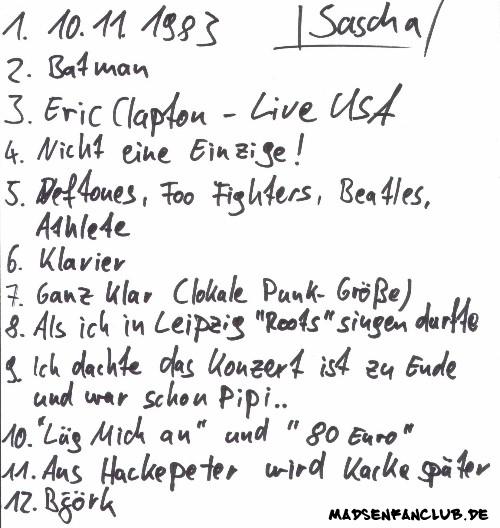 1. 10.11.1983 Sascha
2. Batman
3. Eric Clapton - Live USA
4. Nicht eine Einzige!
5. Deftones, Foo Fighters, Beatles,
Athlete
6. Klavier
7. Ganz Klar (lokale Punk-Größe)
8. Als ich in Leipzig "Roots" singen durfte
9. Ich dachte das Konzert ist zu Ende
und war schon Pipi..
10. "Lüg Mich an" und "80 Euro"
11. Aus Hackepeter wird Kacke später
12. Björk
MADSENFANCLUB.DE